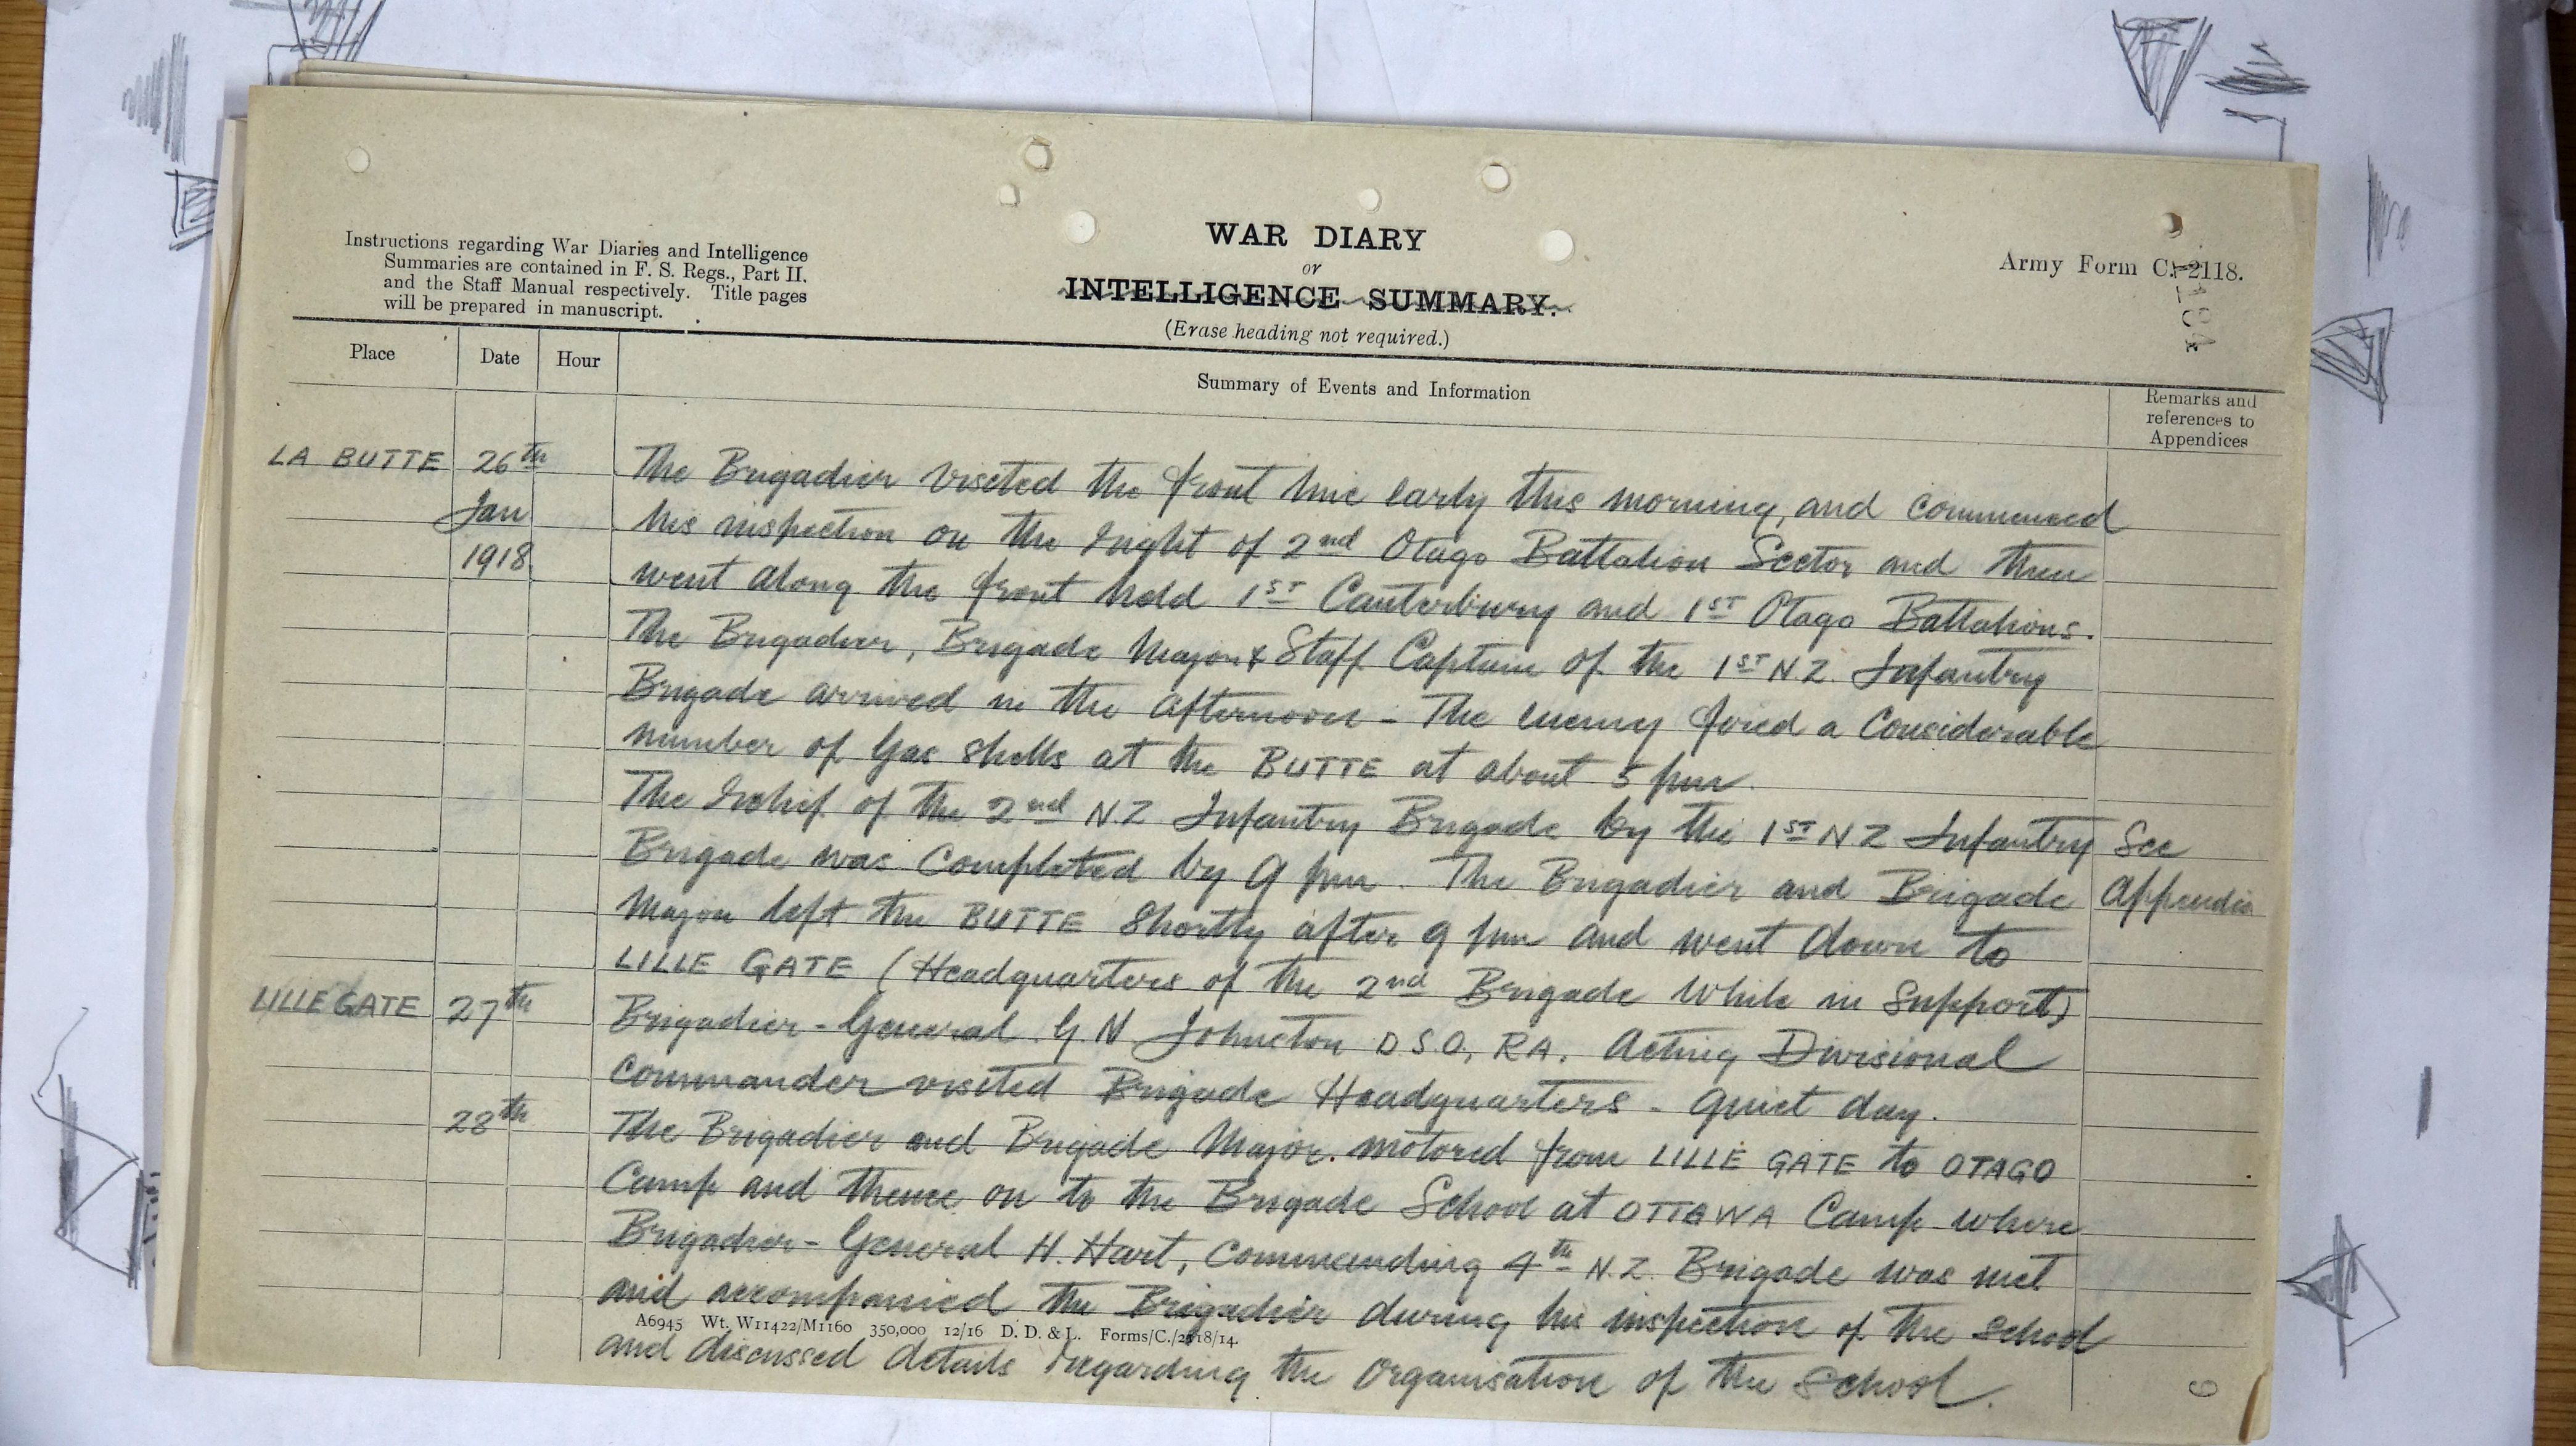 Instructions regarding War Diaries and Intelligence
Summaries are contained in F. S. Regs., Part II.
and the Staff Manual respectively. Title pages
will be prepared in manuscript.
WAR DIARY
or
INTELLIGENCE SUMMARY.
(Erase heading not required.)
Army Form C. 2118.
Place Date Hour Summary of Events and Information Remarks and
references to
Appendices
LA BUTTE 26th The Brigadier visited the front line early this morning, and commenced
Jan his inspection on the right of 2nd Otago Battalion Sector and then
1918 went along the front held 1ST Canterbury and 1ST Otago Battalions.
The Brigadier, Brigade Major & Staff Captain of the 1ST N Z. Infantry
Brigade arrived in the afternoon - The enemy fired a considerable
number of Gas shells at the BUTTE at about 5 pm.
The relief of the 2nd N Z Infantry Brigade by the 1ST N Z Infantry See
Brigade was completed by 9 pm. The Brigadier and Brigade Appendix
Major left the BUTTE shortly after 9 pm and went down to
LILLE GATE (Headquarters of the 2nd Brigade while in support)
LILLE GATE 27th Brigadier-General G. N Johnston D S.O., RA. Acting Divisional
Commander visited Brigade Headquarters - quiet day.
28th The Brigadier and Brigade Major. motored from LILLE GATE to OTAGO
Camp and thence on to the Brigade School at OTTAWA Camp where
Brigadier-General H. Hart, Commanding 4th N.Z. Brigade was met
and accompanied the Brigadier during his inspection of the school
A6945 Wt. W11422/M1160 350,000 12/16 D. D. & L. Forms/C./2118/14.
and discussed details regarding the organisation of the School.